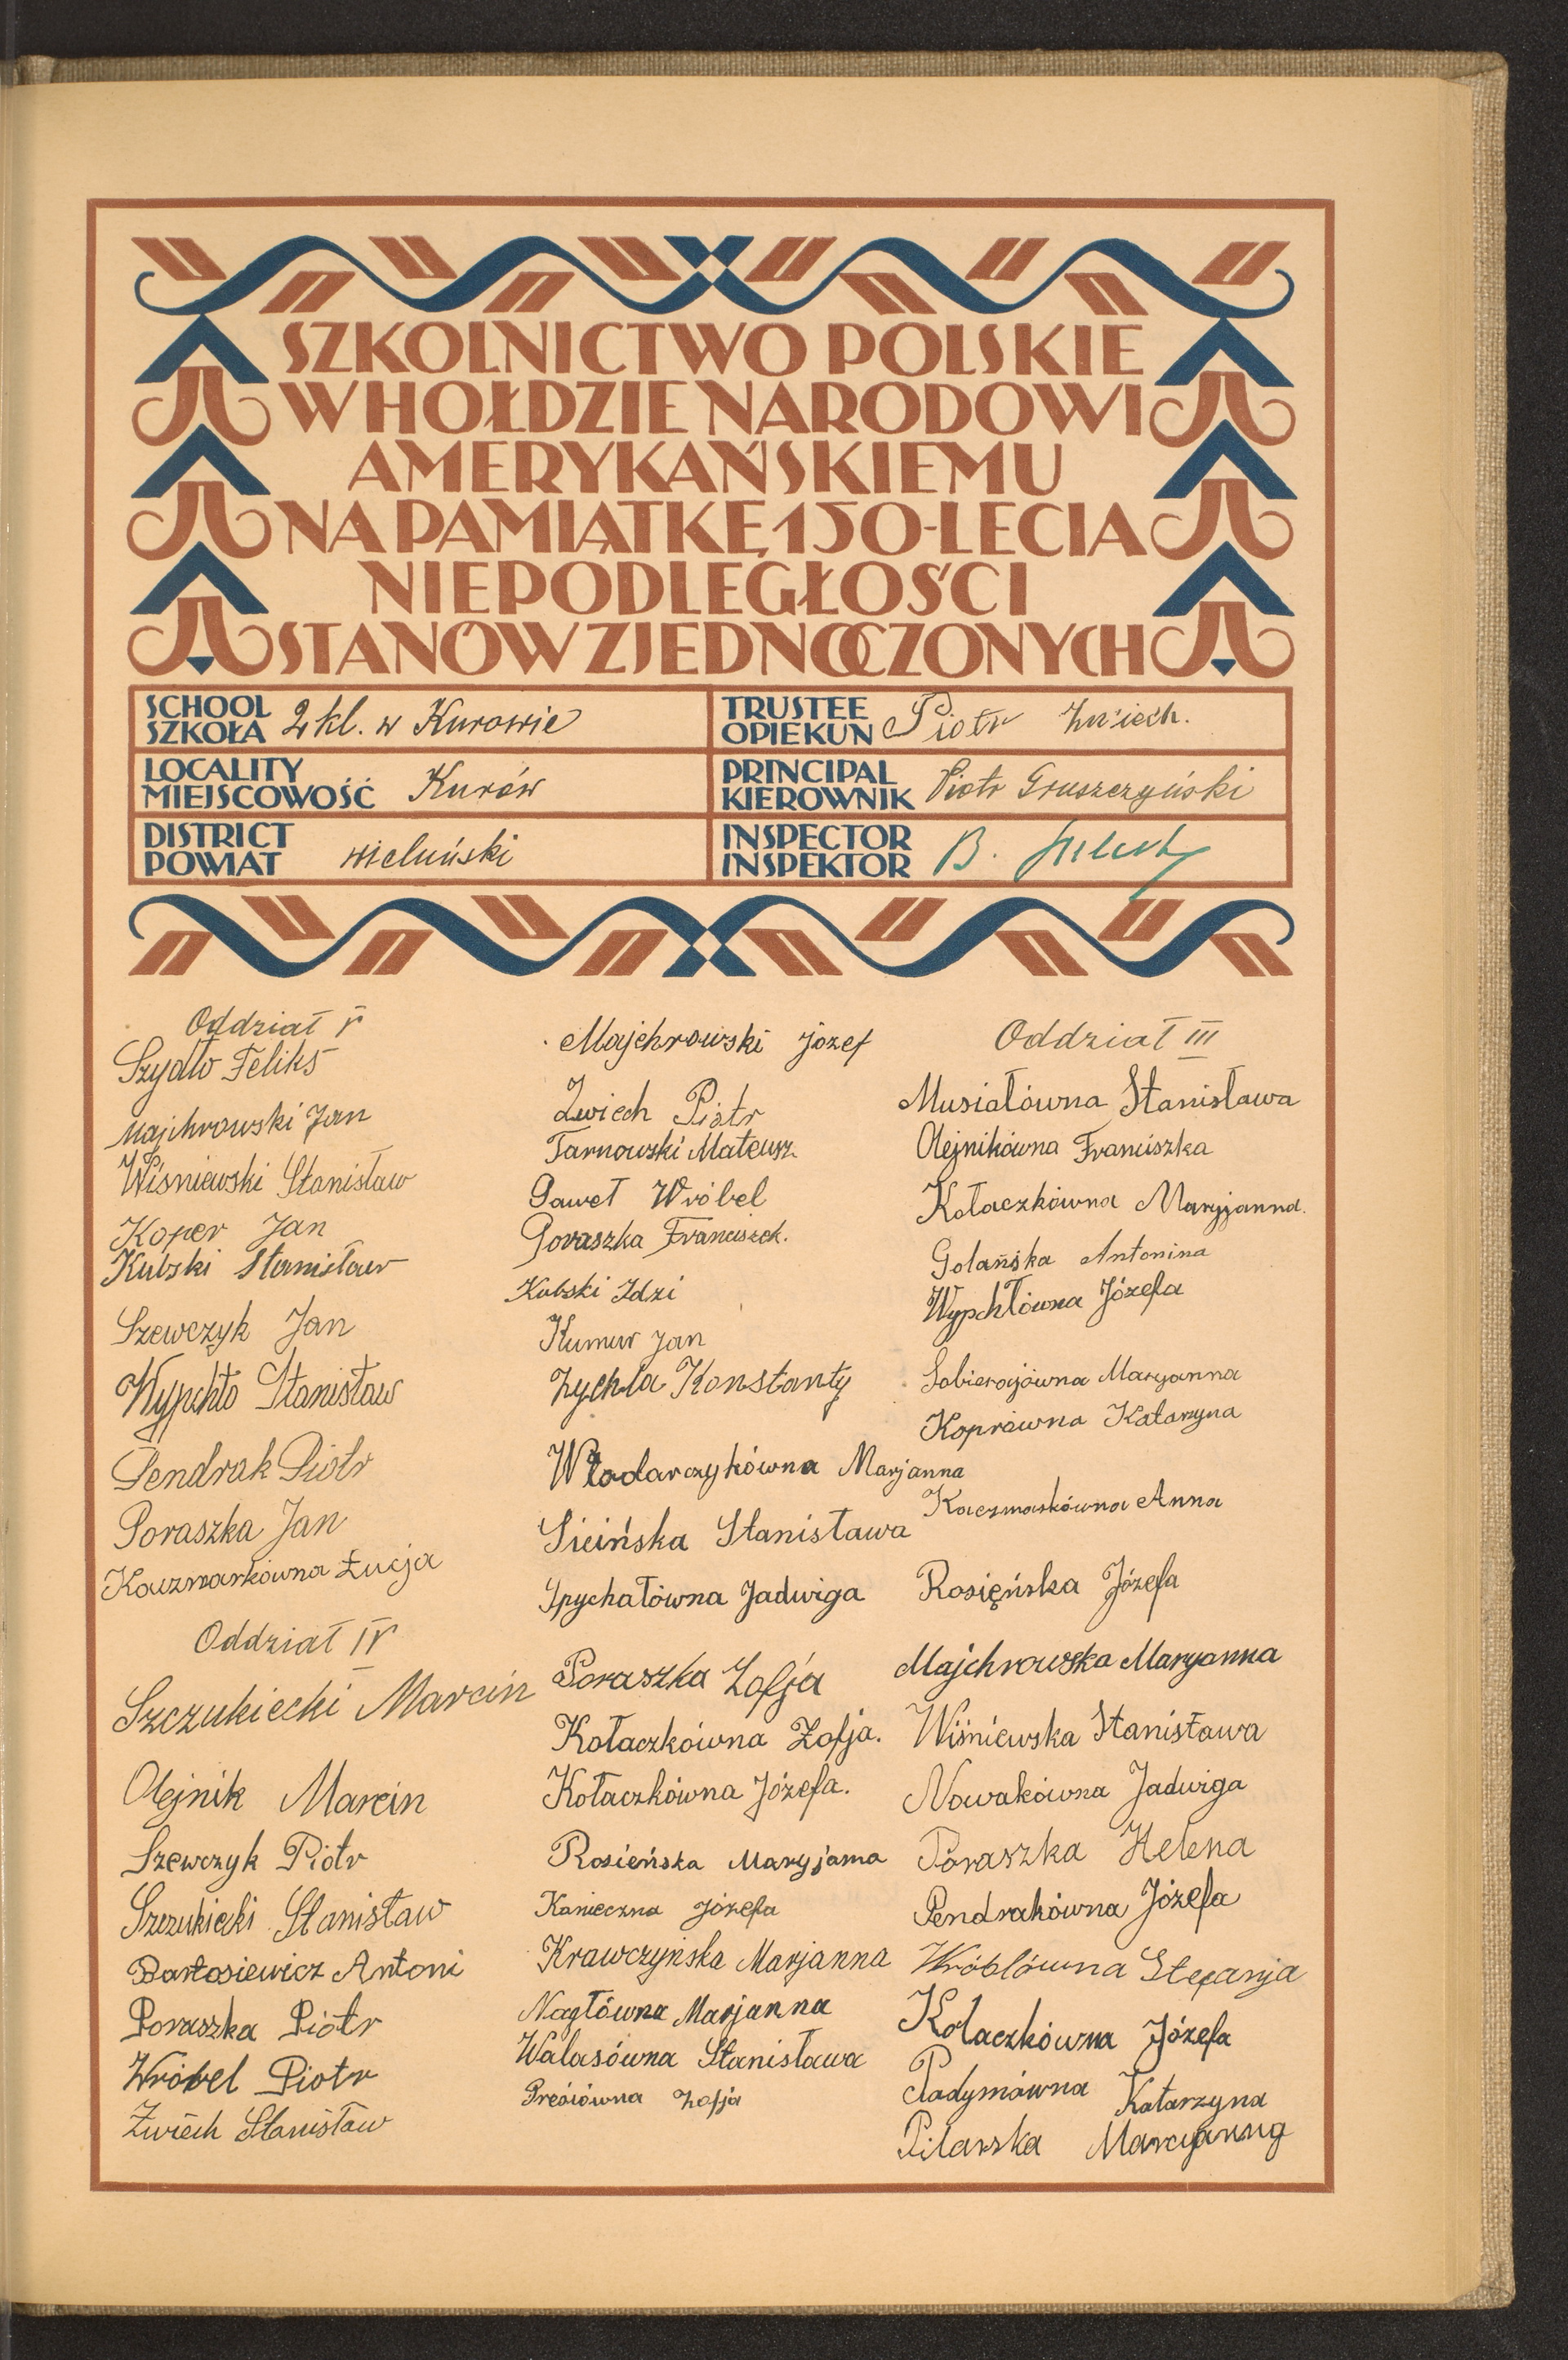 SZKOLNICTWO POLSKIE
W HOŁDZIE NARODOWI
AMERYKAŃSKIEMU
NA PAMIĄTKĘ 150-LECIA
NIEPODLEGŁOŚCI
STANÓW ZJEDNOCZONYCH
SCHOOL
SZKOŁA 2 kl. w Kurowie
TRUSTEE
OPIEKUN Piotr Żwiech.
LOCALITY
MIEJSCOWOŚĆ Kurów
PRINCIPAL
KIEROWNIK Piotr Gruszczyński
DISTRICT
POWIAT wieluński
INSPECTOR
INSPEKTOR B.
Oddział V
Szydło Feliks
Majchrowski Jan
Wiśniewski Stanisław
Koper Jan
Kubski Stanisław
Szewczyk Jan
Wypchło Stanisław
Pendrak Piotr
Poraszka Jan
Kaczmarkówna Łucja
Oddział IV
Szczukiecki Marcin
Olejnik Marcin
Szewczyk Piotr
Szczukiecki Stanisław
Bartosiewicz Antoni
Poraszka Piotr
Wróbel Piotr
Żwiech Stanisław
Majchrowski Józef
Żwiech Piotr
Tarnowski Mateusz
Paweł Wróbel
Poraszka Franciszek.
Kubski Idzi
Kumur Jan
Zychla Konstanty
Włodarczykówna Marjanna
Sicińska Stanisława
Spychałówna Jadwiga
Poraszka Zofja
Kołaczkówna Zofja.
Kołaczkówna Józefa.
Rosieńska Maryjanna
Konieczna Józefa
Krawczyńska Marjanna
Nagłówna Marjanna
Walasówna Stanisława
Zofja
Oddział III
Musiałówna Stanisława
Olejnikówna Franciszka
Kołaczkówna Maryjanna.
Golańska Antonina
Wypchłówna Józefa
Sobierajówna Maryanna
Koprówna Katarzyna
Kaczmarkówna Anna
Rosięńska Józefa
Majchrowska Maryanna
Wiśniewska Stanisława
Nowakówna Jadwiga
Poraszka Helena
Pendrakówna Józefa
Wróblówna Stefanja
Kolaczkówna Józefa
Radymówna Katarzyna
Pilarska Marcyanna